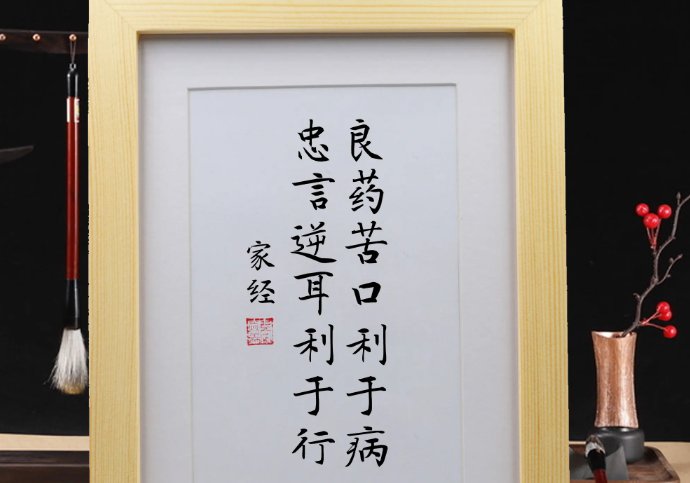 良药苦口利于病
忠言逆耳利于行
家经